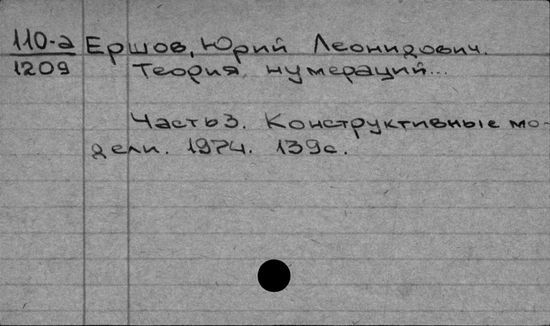 110-а Ершов, Юрий Леонидович.
1209 Теория нумераций...
Часть 3. Конструктивные мо-
дели. 1974. 139с.